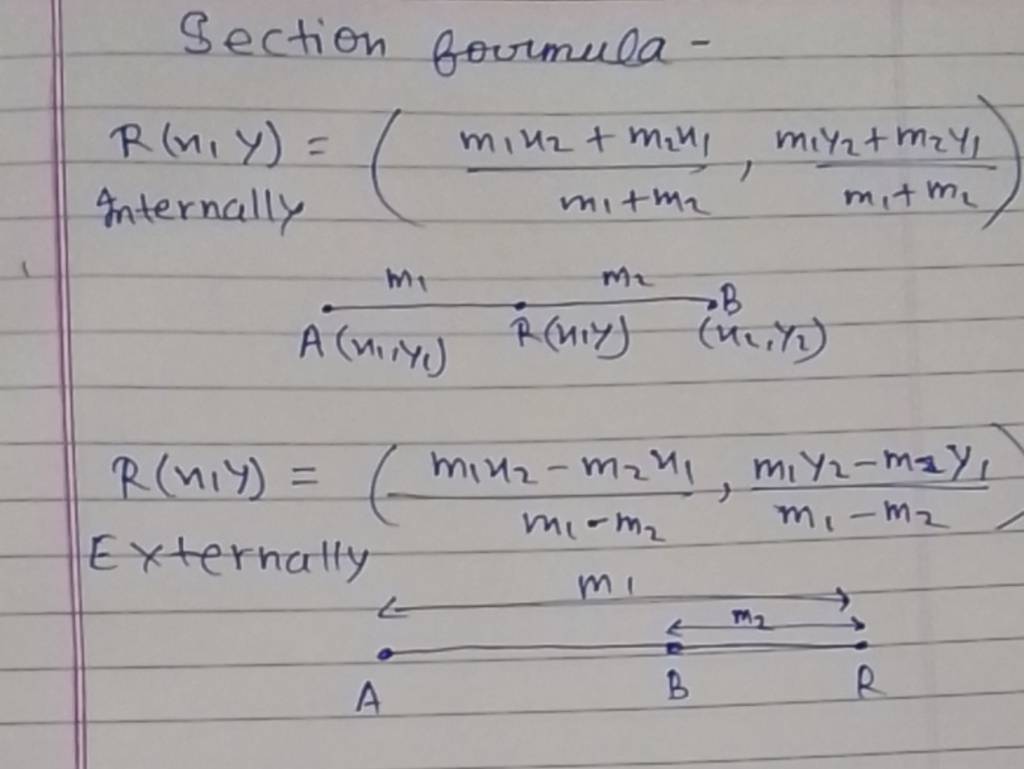 Section formula -
R(x, y) = ( m₁x₂ + m₂x₁ / m₁ + m₂ , m₁y₂ + m₂y₁ / m₁ + m₂ )
Internally
m₁ m₂
B
A (x₁, y₁) R(x, y) (x₂, y₂)
R(x, y) = ( m₁x₂ - m₂x₁ / m₁ - m₂ , m₁y₂ - m₂y₁ / m₁ - m₂ )
Externally
m₁
m₂
A B R